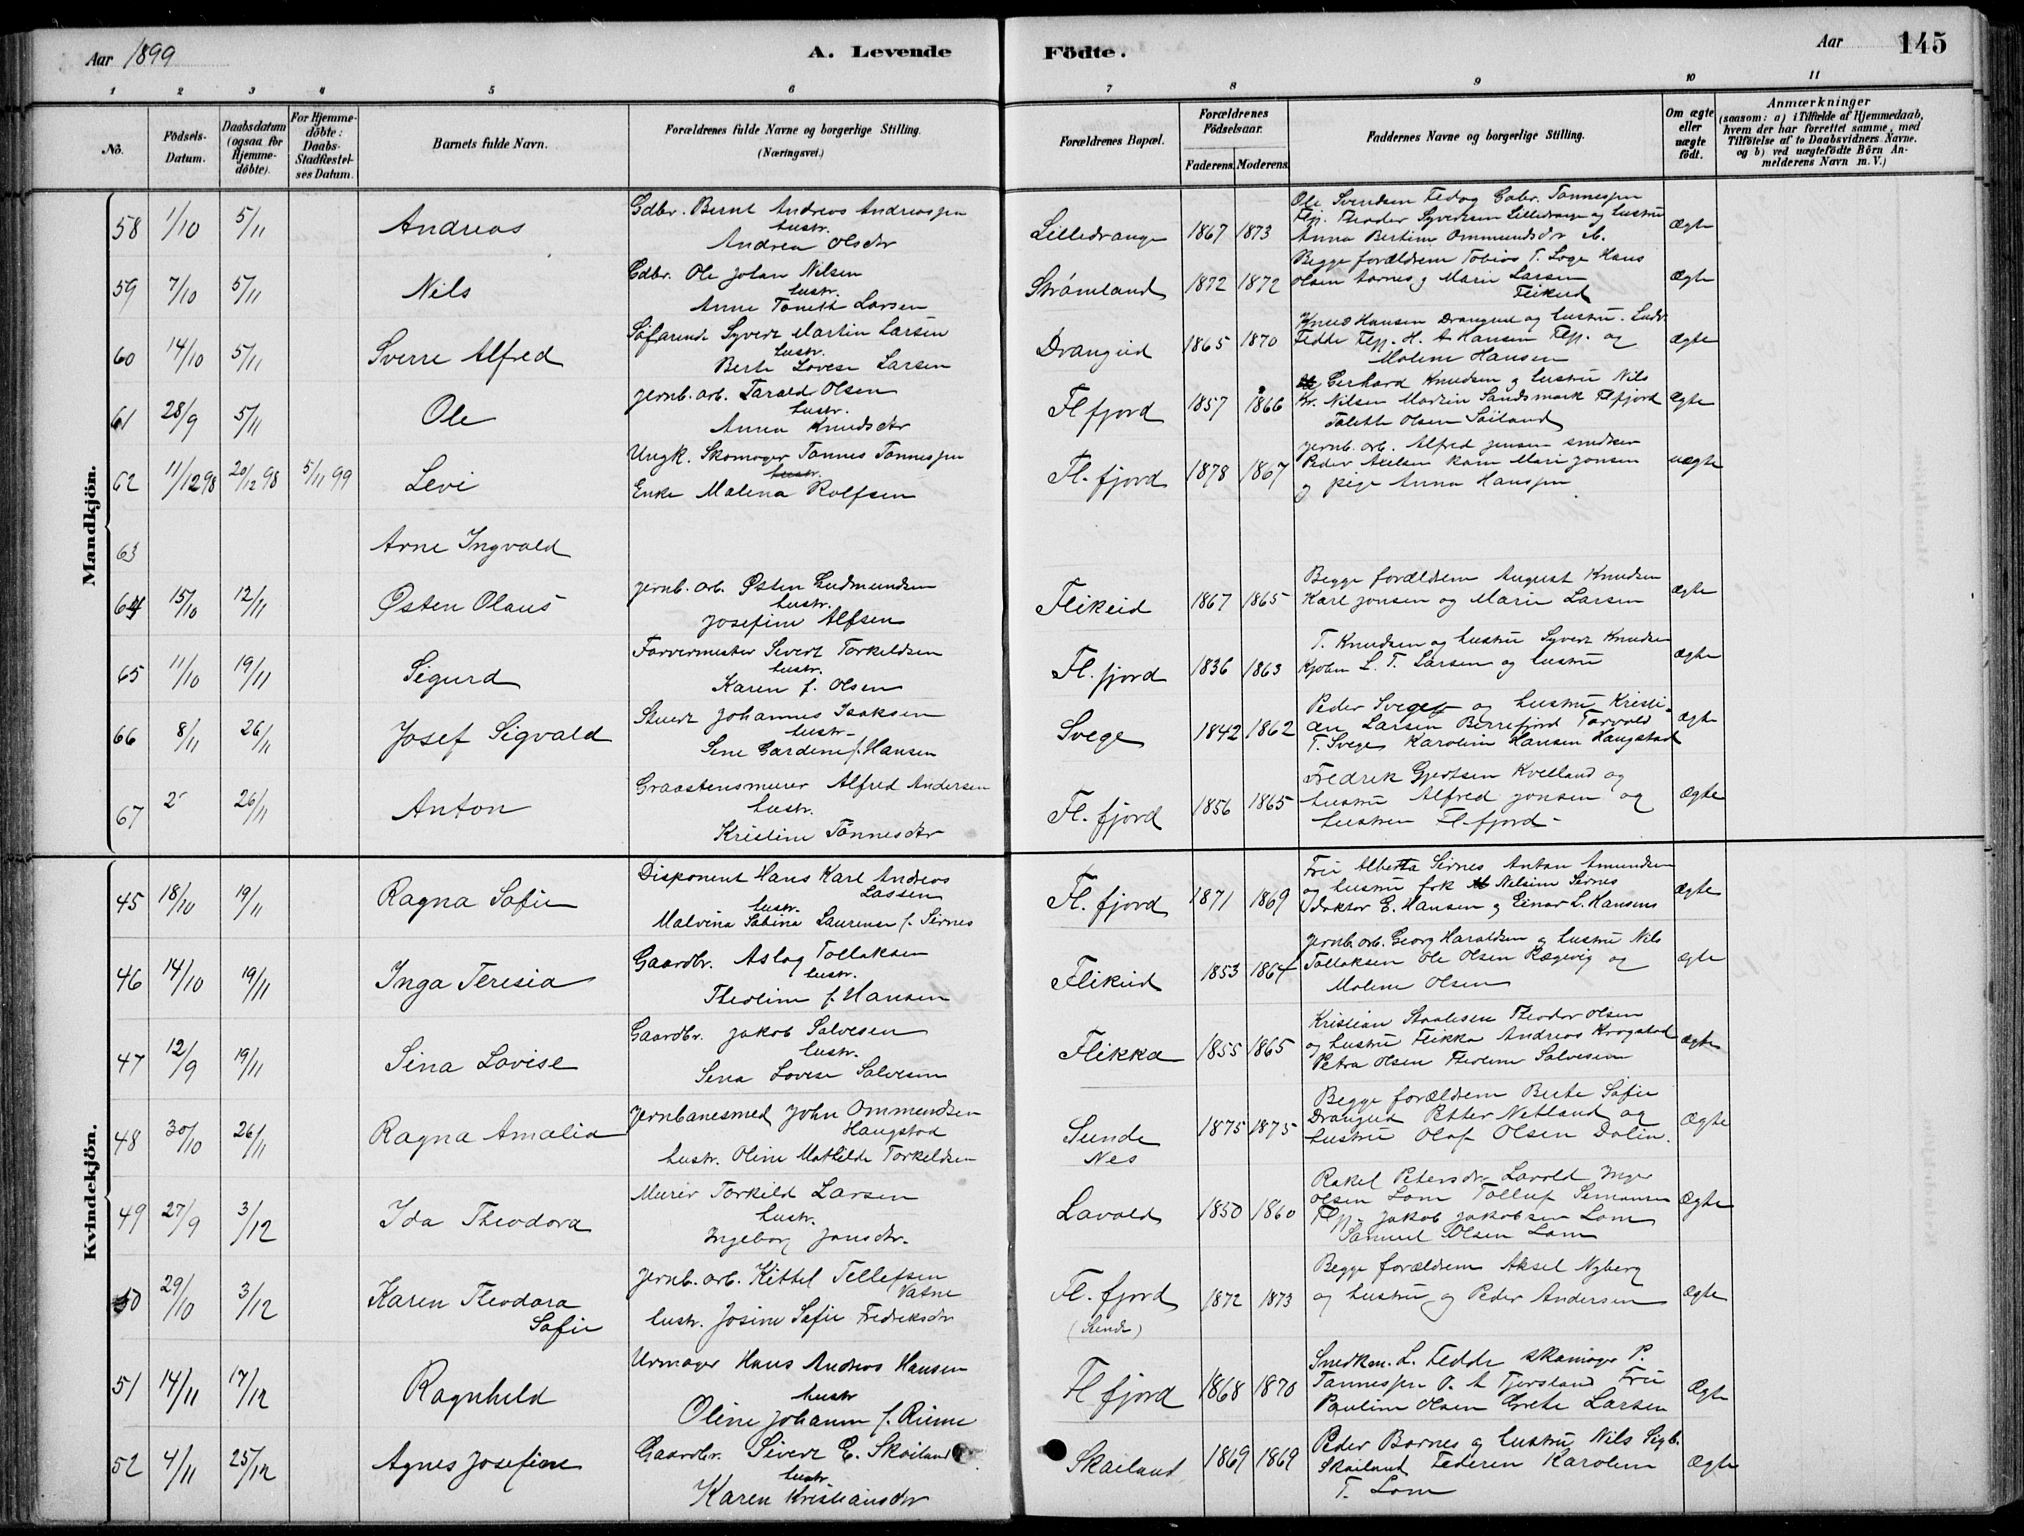 Aar 1899 A. Levende Födte. Aar 145
1 2 3 4 5 6 7 8 9 10 11
No. Födsels-Datum. Daabsdatum (ogsaa for Hjemmedöbte). For Hjemmedöbte: Daabs-Stadfæstelses Datum. Barnets fulde Navn. Forældrenes fulde Navne og borgerlige Stilling. (Næringsvei.) Forældrenes Bopæl. Forældrenes Födselsaar. Faderens. Moderens. Faddernes Navne og borgerlige Stilling. Om ægte eller uægte födt. Anmærkninger (saasom: a) i Tilfælde af Hjemmedaab, hvem der har forrettet samme, med Tilföielse af to Daabsvidners Navne. og b) ved uægtefödte Börn Anmelderens Navn m. V.)
Mandkjön.
58 1/10 5/11 Andreas
Gdbr. Bernt Andreas Andreassen
hustr.
Andrea Olsdtr
Lilledrange 1867 1873
Ole Svendsen Fedog Gabr. Tønnessen
Flj. Theodor Syvertsen Lilledrange og hustru
Anna Bertine Ommundsdtr
Ægte
59 7/10 5/11 Nils
Gdbr. Ole Johan Nilsen
hustr.
Anne Larsen
Strømland 1872 1872
Begge forældrene Tobias T. Loge Hans
Olsen Aarnes og Marie Larsen
Flikeid
Ægte
60 14/10 5/11 Sverre Alfred
Søfarende Syvert Martin Larsen
hustr.
Berte Lovise Larsen
Drangeid 1865 1870
Knud Hansen Drangeid og hustru. Ludv.
Fedde Flj. H. A Hansen Flj. og
Malene Hansen
Ægte
61 28/9 5/11 Ole
Jernb. arb. Tarald Olsen
hustr.
Anna Knudsdtr
Fl fjord 1857 1866
Gerhard Knudsen og hustru Nils
Kr. Nilsen Martin Sandsmark Flfjord
Talette Olsen Søiland
Ægte
62 11/12 98 20/12 98 5/11 99 Levi
Ungk. Skomager Tønnes Tønnessen
hustr.
Enke Malena Rolfsen
Fl. fjord 1878 1867
Jernb. arb. Alfred Jensen
Peder Axelsen kone Mari Jonsen
og pige Anna Hanssen
uægte
63 Arne Ingvald
64 15/10 12/11 Østen Olaus
Jernb. arb. Østen Gudmundsen
hustr.
Josefine Alfsen
Flikeid 1867 1865
Begge forældrene August Knudsen
Karl Jonsen og Marie Larsen
Ægte
65 11/10 19/11 Sigurd
Farvermester Sivert Torkeldsen
hustr.
Karen f. Olsen
Fl. fjord 1836 1863
T. Knudsen og hustru Syvert Knudsen
L. T. Larsen og hustru
Ægte
66 8/11 26/11 Josef Sigvald
Johannes Isaksen
hustr.
Sene Gardine f. Hansen
Svege 1842 1862
Peder Svege og hustru Kristi-
an Larsen Berrefjord Torvald
T. Svege Karoline Hansen Haugstad
Ægte
67 26/11 Anton
Graastensmurer Alfred Andersen
hustr.
Kristine Tønnesdtr
Fl. fjord 1856 1865
Fredrik Gjertsen Kvelland og
hustru Alfred Jonsen og
hustru Fl-fjord-
Ægte
Kvindekjön.
45 18/10 19/11 Ragna Sofie
Disponent Hans Karl Andreas
Lassen
hustr.
Malvina Sabina Laurense f. Sirnes
Fl. fjord 1871 1869
Fru Alberta Sirnes Anton Amundsen
og hustru frk Nelsine Sirnes
Doktor E. Hansen og Einar L. Hansens
Ægte
46 14/10 19/11 Inga Teresia
Gaardbr. Aslag Tollaksen
hustr.
Theoline f. Hansen
Flikeid 1853 1864
Jernb. arb. Georg Haraldsen og hustru Nils
Tollaksen Ole Olsen Rægevig og
Malene Olsen
Ægte
47 12/9 19/11 Sina Lovise
Gaardbr. Jakob Salvesen
hustr.
Sena Lovise Salvesen
Flikka 1855 1865
Kristian Staalesen Theodor Olsen
og hustru Flikka Andreas Krogstad
Petra Olsen Theoline Salvesen
Ægte
48 30/10 26/11 Ragna Amalia
Jernbanesmed John Ommundsen
Haugstad
hustr. Oline Mathilde Torkeldsen
Sunde
Nes
1875 1875
Begge forældrene Berte Sofie
Drangeid Petter Netland og
hustru Olaf Olsen Dalin.
Ægte
49 27/9 3/12 Ida Theodora
Murer Torkild Larsen
hustr.
Ingeborg Jonsdtr.
Lavold 1850 1860
Rakel Petersdtr Lavold Inger
Olsen Lom Tolluf Simonsen
Flj. Jakob Jakobsen Lom
Samuel Olsen Lom
Ægte
50 29/10 3/12 Karen Theodora
Sofie
Jernb. arb. Kittel Tellefsen
Vatne
hustr. Josine Sofie Fredriksdtr
Fl. fjord
(Sunde)
1872 1873
Begge forældrene Aksel Nyberg
og hustru og Peder Andersen
Ægte
51 14/11 17/12 Ragnhild
Urmager Hans Andreas Hansen
hustr
Oline Johanne f. Riime
Fl fjord 1868 1870
Snedkerm. L. Fedde skomager P.
Tønnessen O. A Tjersland Fru
Pauline Olsen Grete Larsen
Ægte
52 4/11 25/12 Agnes Josefine
Gaardbr. Sivert E. Skailand
hustr
Karen Kristiansdtr
Skailand 1869 1869
Peder Barnes og hustru Nils Sigb.
Skailand Federen Karoline
T. Lom
Ægte